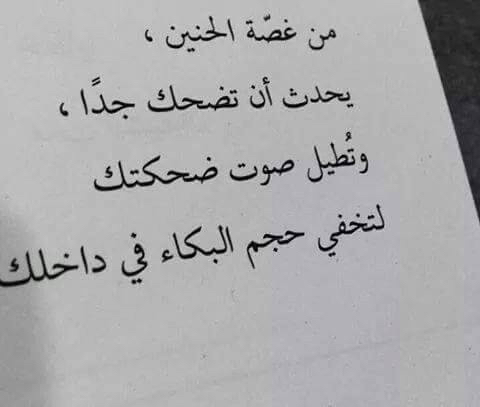 من غصّة الحنين ،
يحدث أن تضحك جدًا ،
وتُطيل صوت ضحكتك
لتخفي حجم البكاء في داخلك